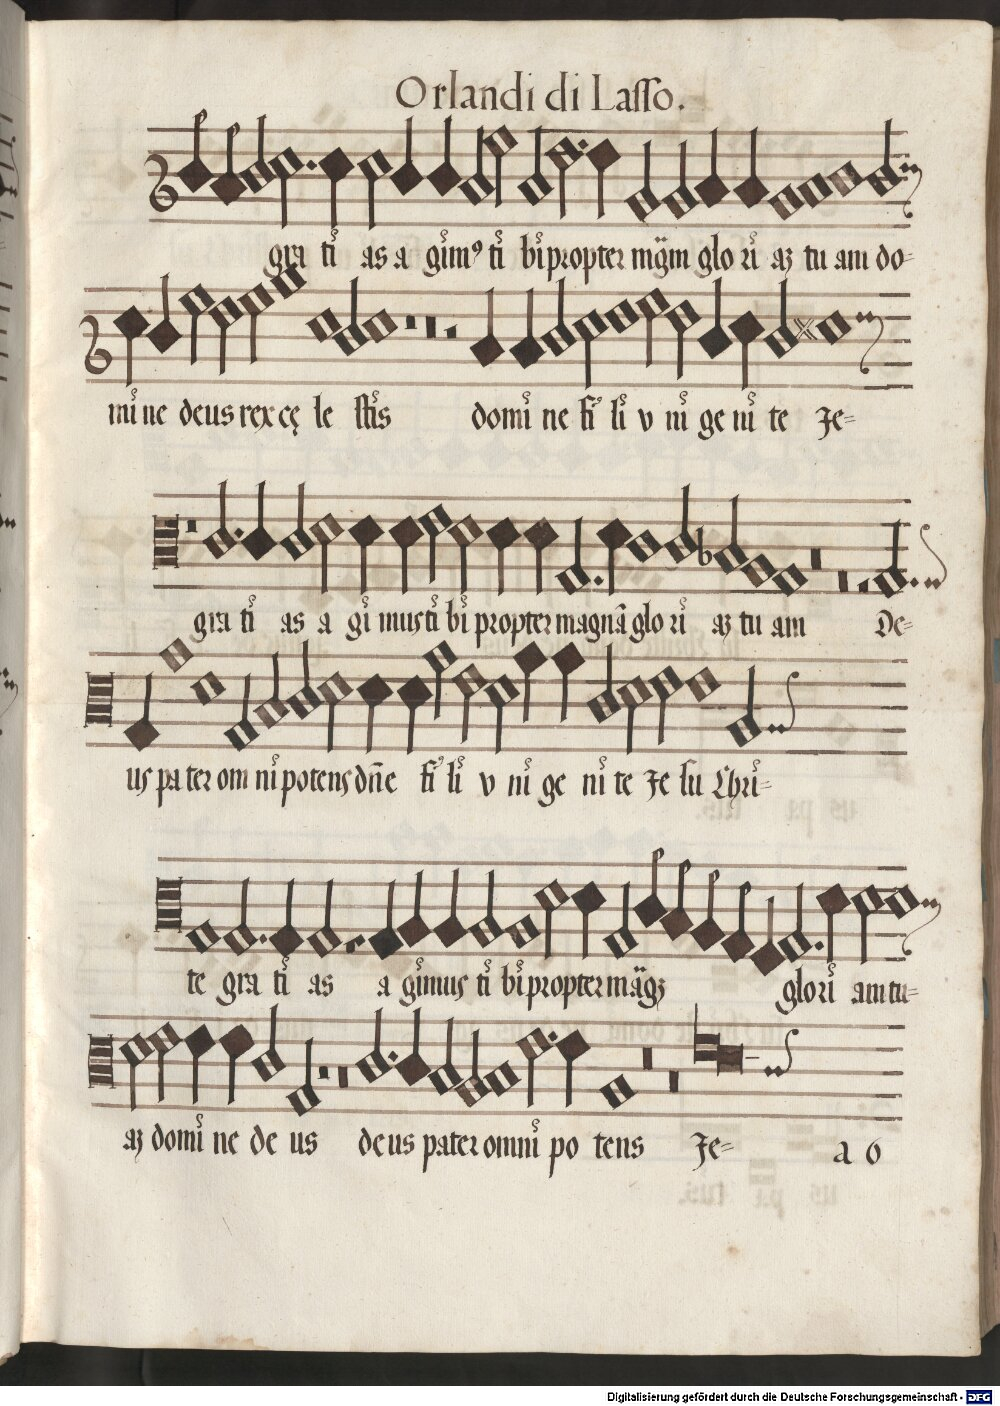 Orlandi di Lasso.
gra ti as a gim⁹ ti bi propter mg̃m glo ri aꝫ tu am do-
mi ne deus rex cę le stis domi ne fi li v ni ge ni te Je-
gra ti as a gi mus ti bi propter magnã glo ri aꝫ tu am De-
us pa ter om ni potens dñe fi li v ni ge ni te Je su Chri-
te gra ti as a gimus ti bi propter mãgꝫ glo ri am tu-
aꝫ domi ne de us deus pater omni po tens Je- a 6
Digitalisierung gefördert durch die Deutsche Forschungsgemeinschaft - DFG